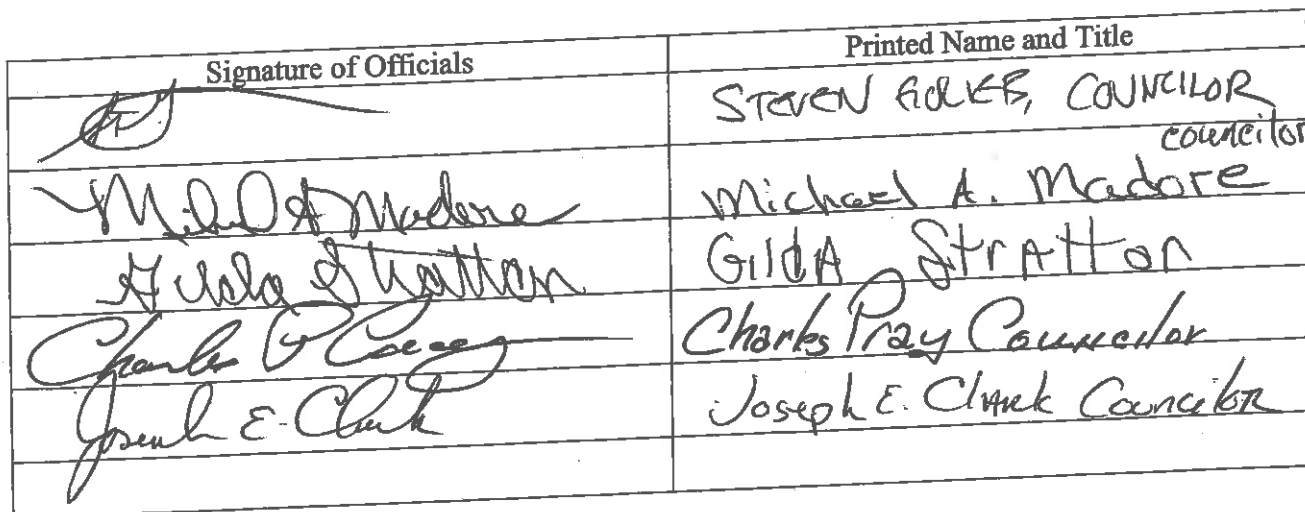 Signature of Officials
Printed Name and Title
STEVEN COUNCILOR
councilor
Michael A. Madore
Michael A. Madore
Gilda Stratton
GildA StrAtton
Charles P
Charles Pray Councilor
Joseph E. Clark
Joseph E. Clark Councilor